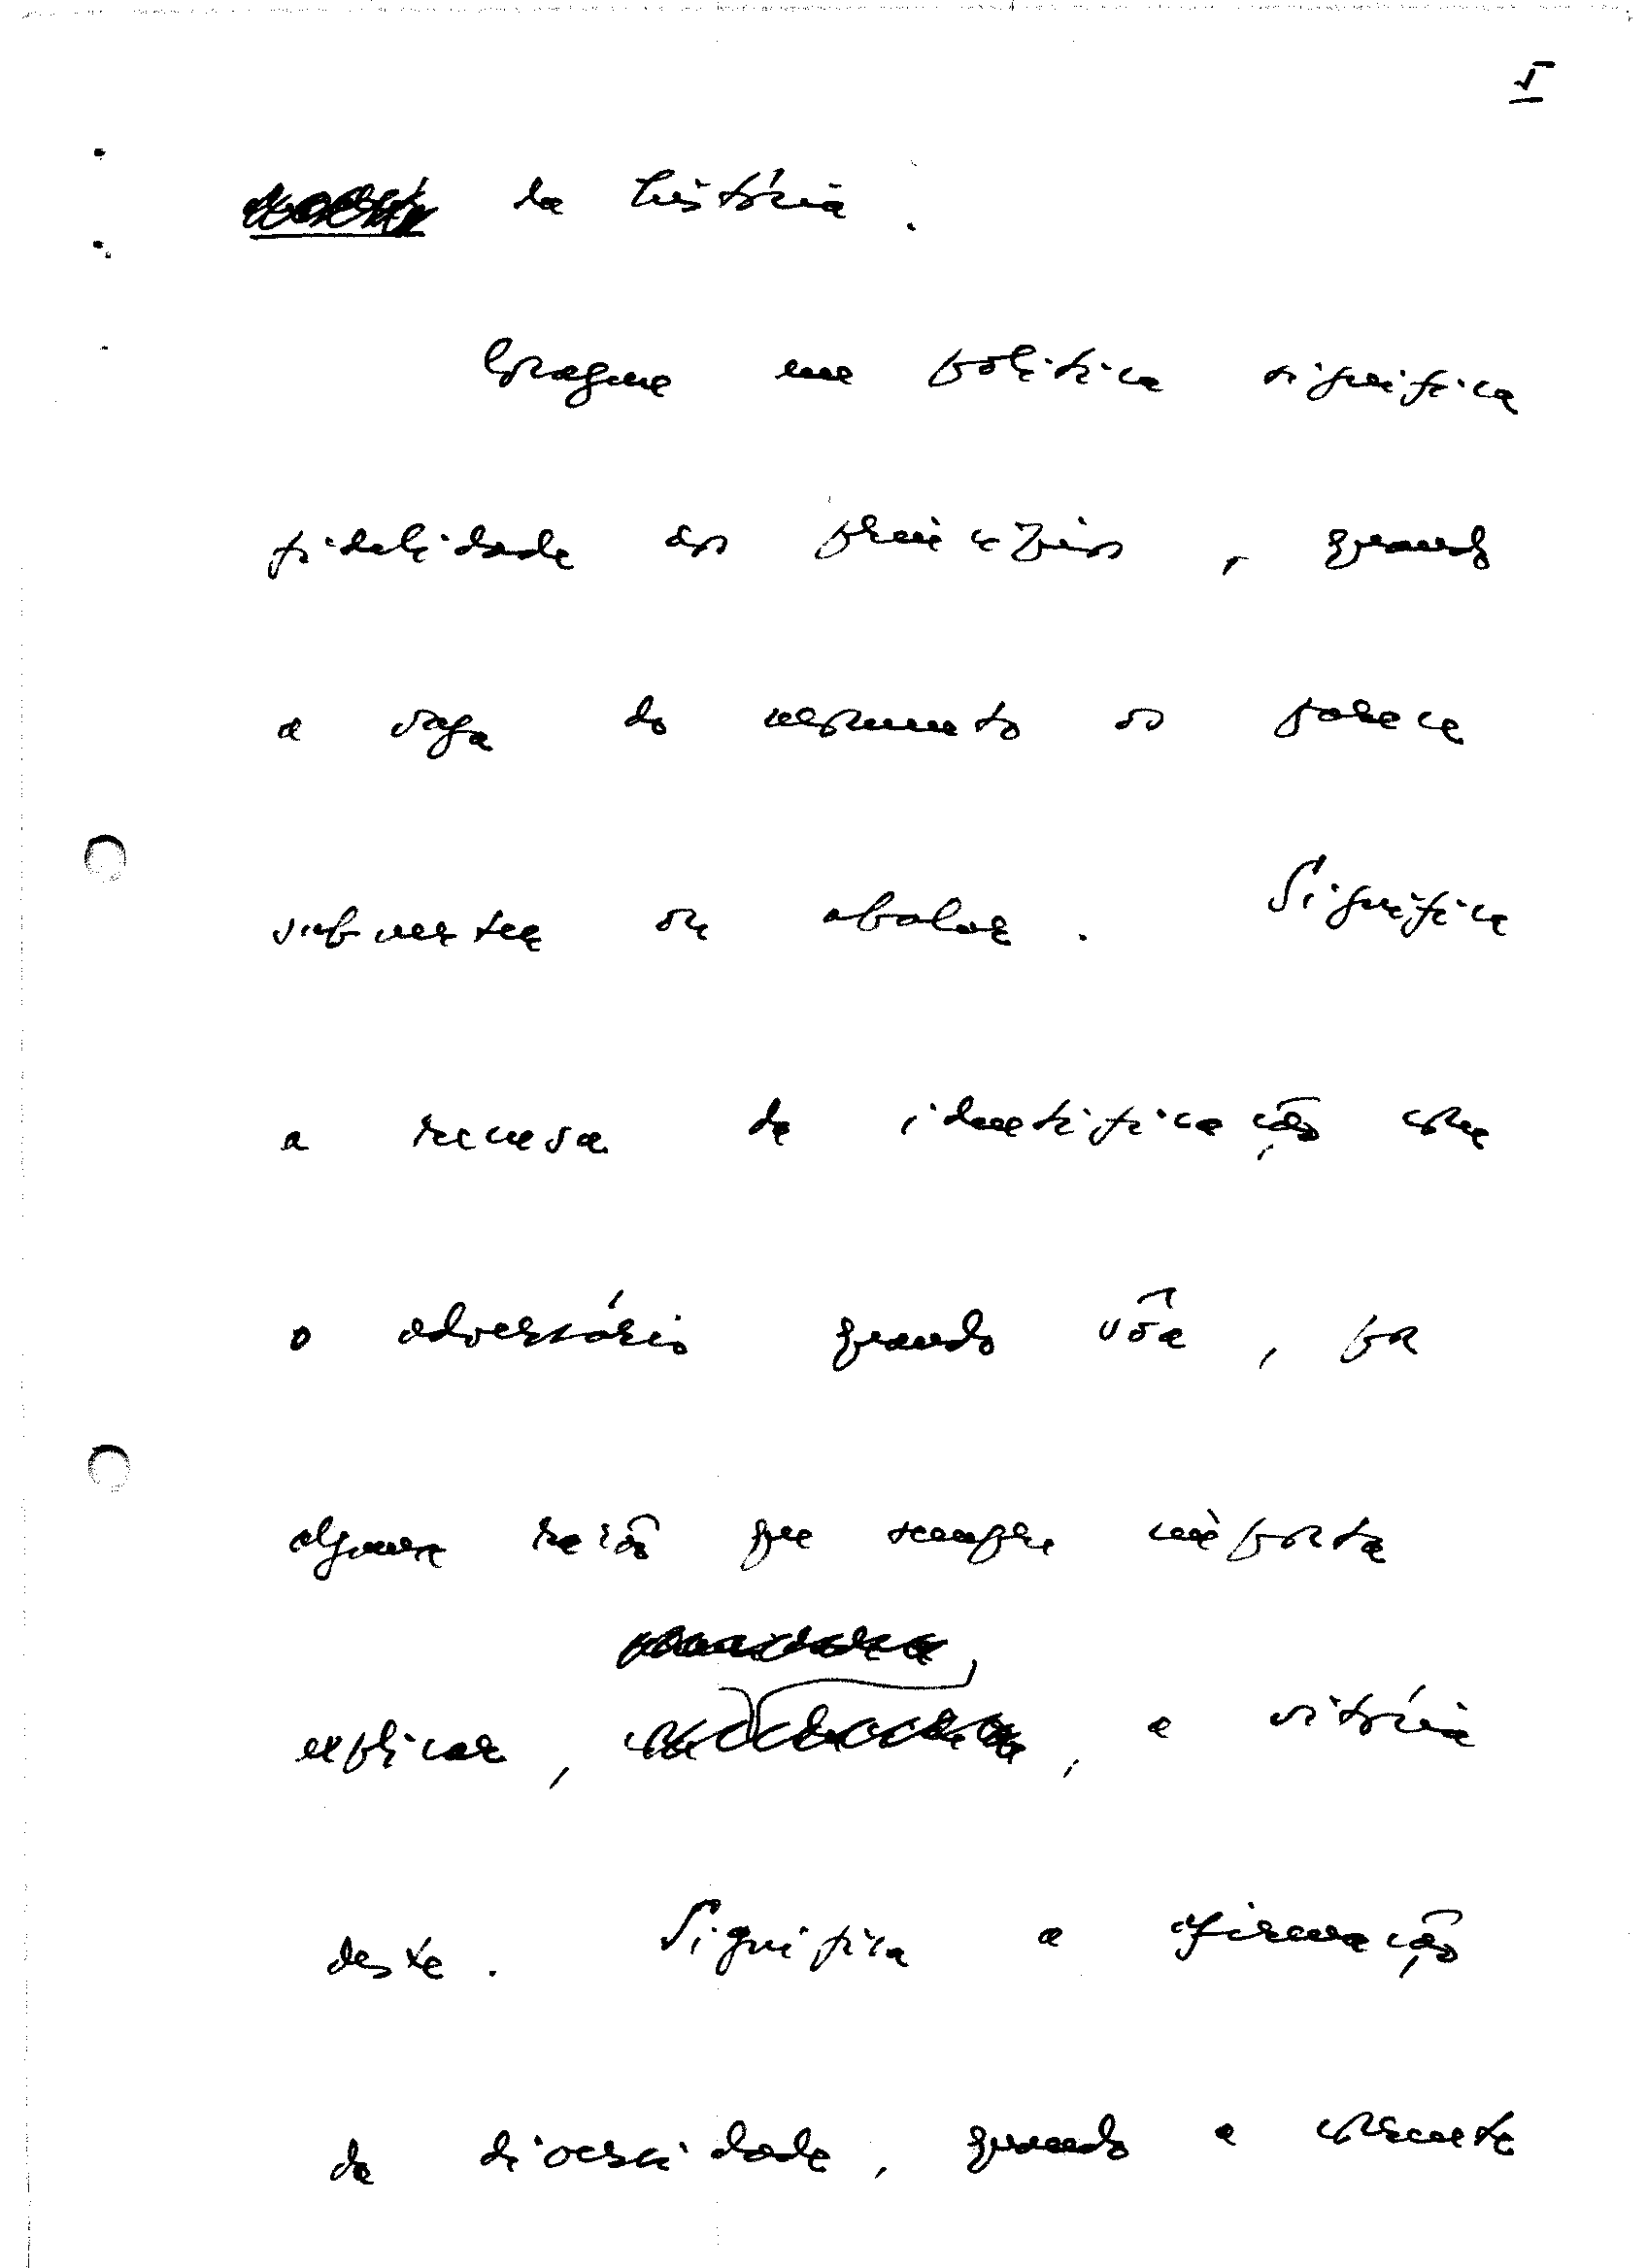 5
da história.
Coragem em política significa
fidelidade aos princípios, quando
a vaga do momento os parece
subverter ou abalar. Significa
a recusa da identificação com
o adversário quando vôa, por
alguma razão que sempre importa
explicar, , a vitória
deste. Significa a afirmação
da diversidade, quando a corrente